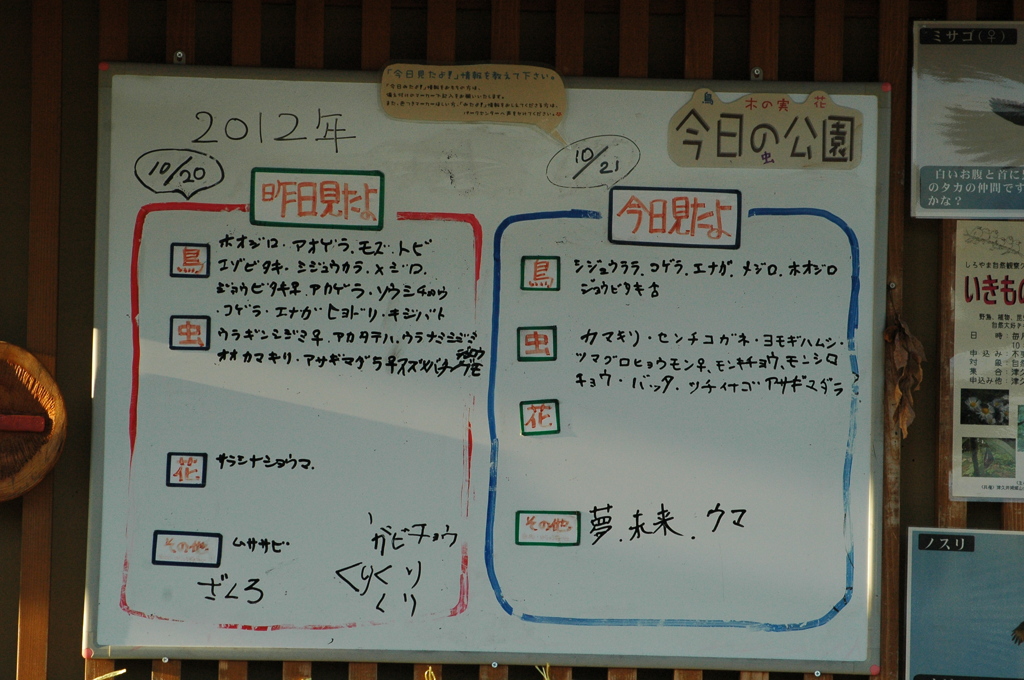 「今日見たよ!」情報を教えて下さい。
鳥 木の実 花
今日の公園
虫
2012年
10/20
昨日見たよ
鳥
ホオジロ・アオゲラ・モズ・トビ
エゾビタキ・シジュウカラ・メジロ・
ジョウビタキ♀・アカゲラ・ソウシチョウ
・コゲラ・エナガ ヒヨドリ・キジバト
虫
ウラギンシジミ♀・アカタテハ・ウラナミシジミ
オオカマキリ・アサギマダラ♀
花
サラシナショウマ.
その他
ムササビ・
ガビチョウ
ざくろ
くりくり
くり
10/21
今日見たよ
鳥
シジュウララ、コゲラ、エナガ、メジロ、ホオジロ
ジョウビタキ
虫
カマキリ・センチコガネ・ヨモギハムシ・
ツマグロヒョウモン♀、モンキチョウ、モンシロ
チョウ・バッタ・ツチイナゴ アサギマダラ
花
その他.
夢.未来.ウマ
ミサゴ(♀)
白いお腹と首に
のタカの仲間です
かな?
いきもの
日 時:毎月
申込み:不要
対 象:自然
集 合:津久
申込み他:津久
ノスリ